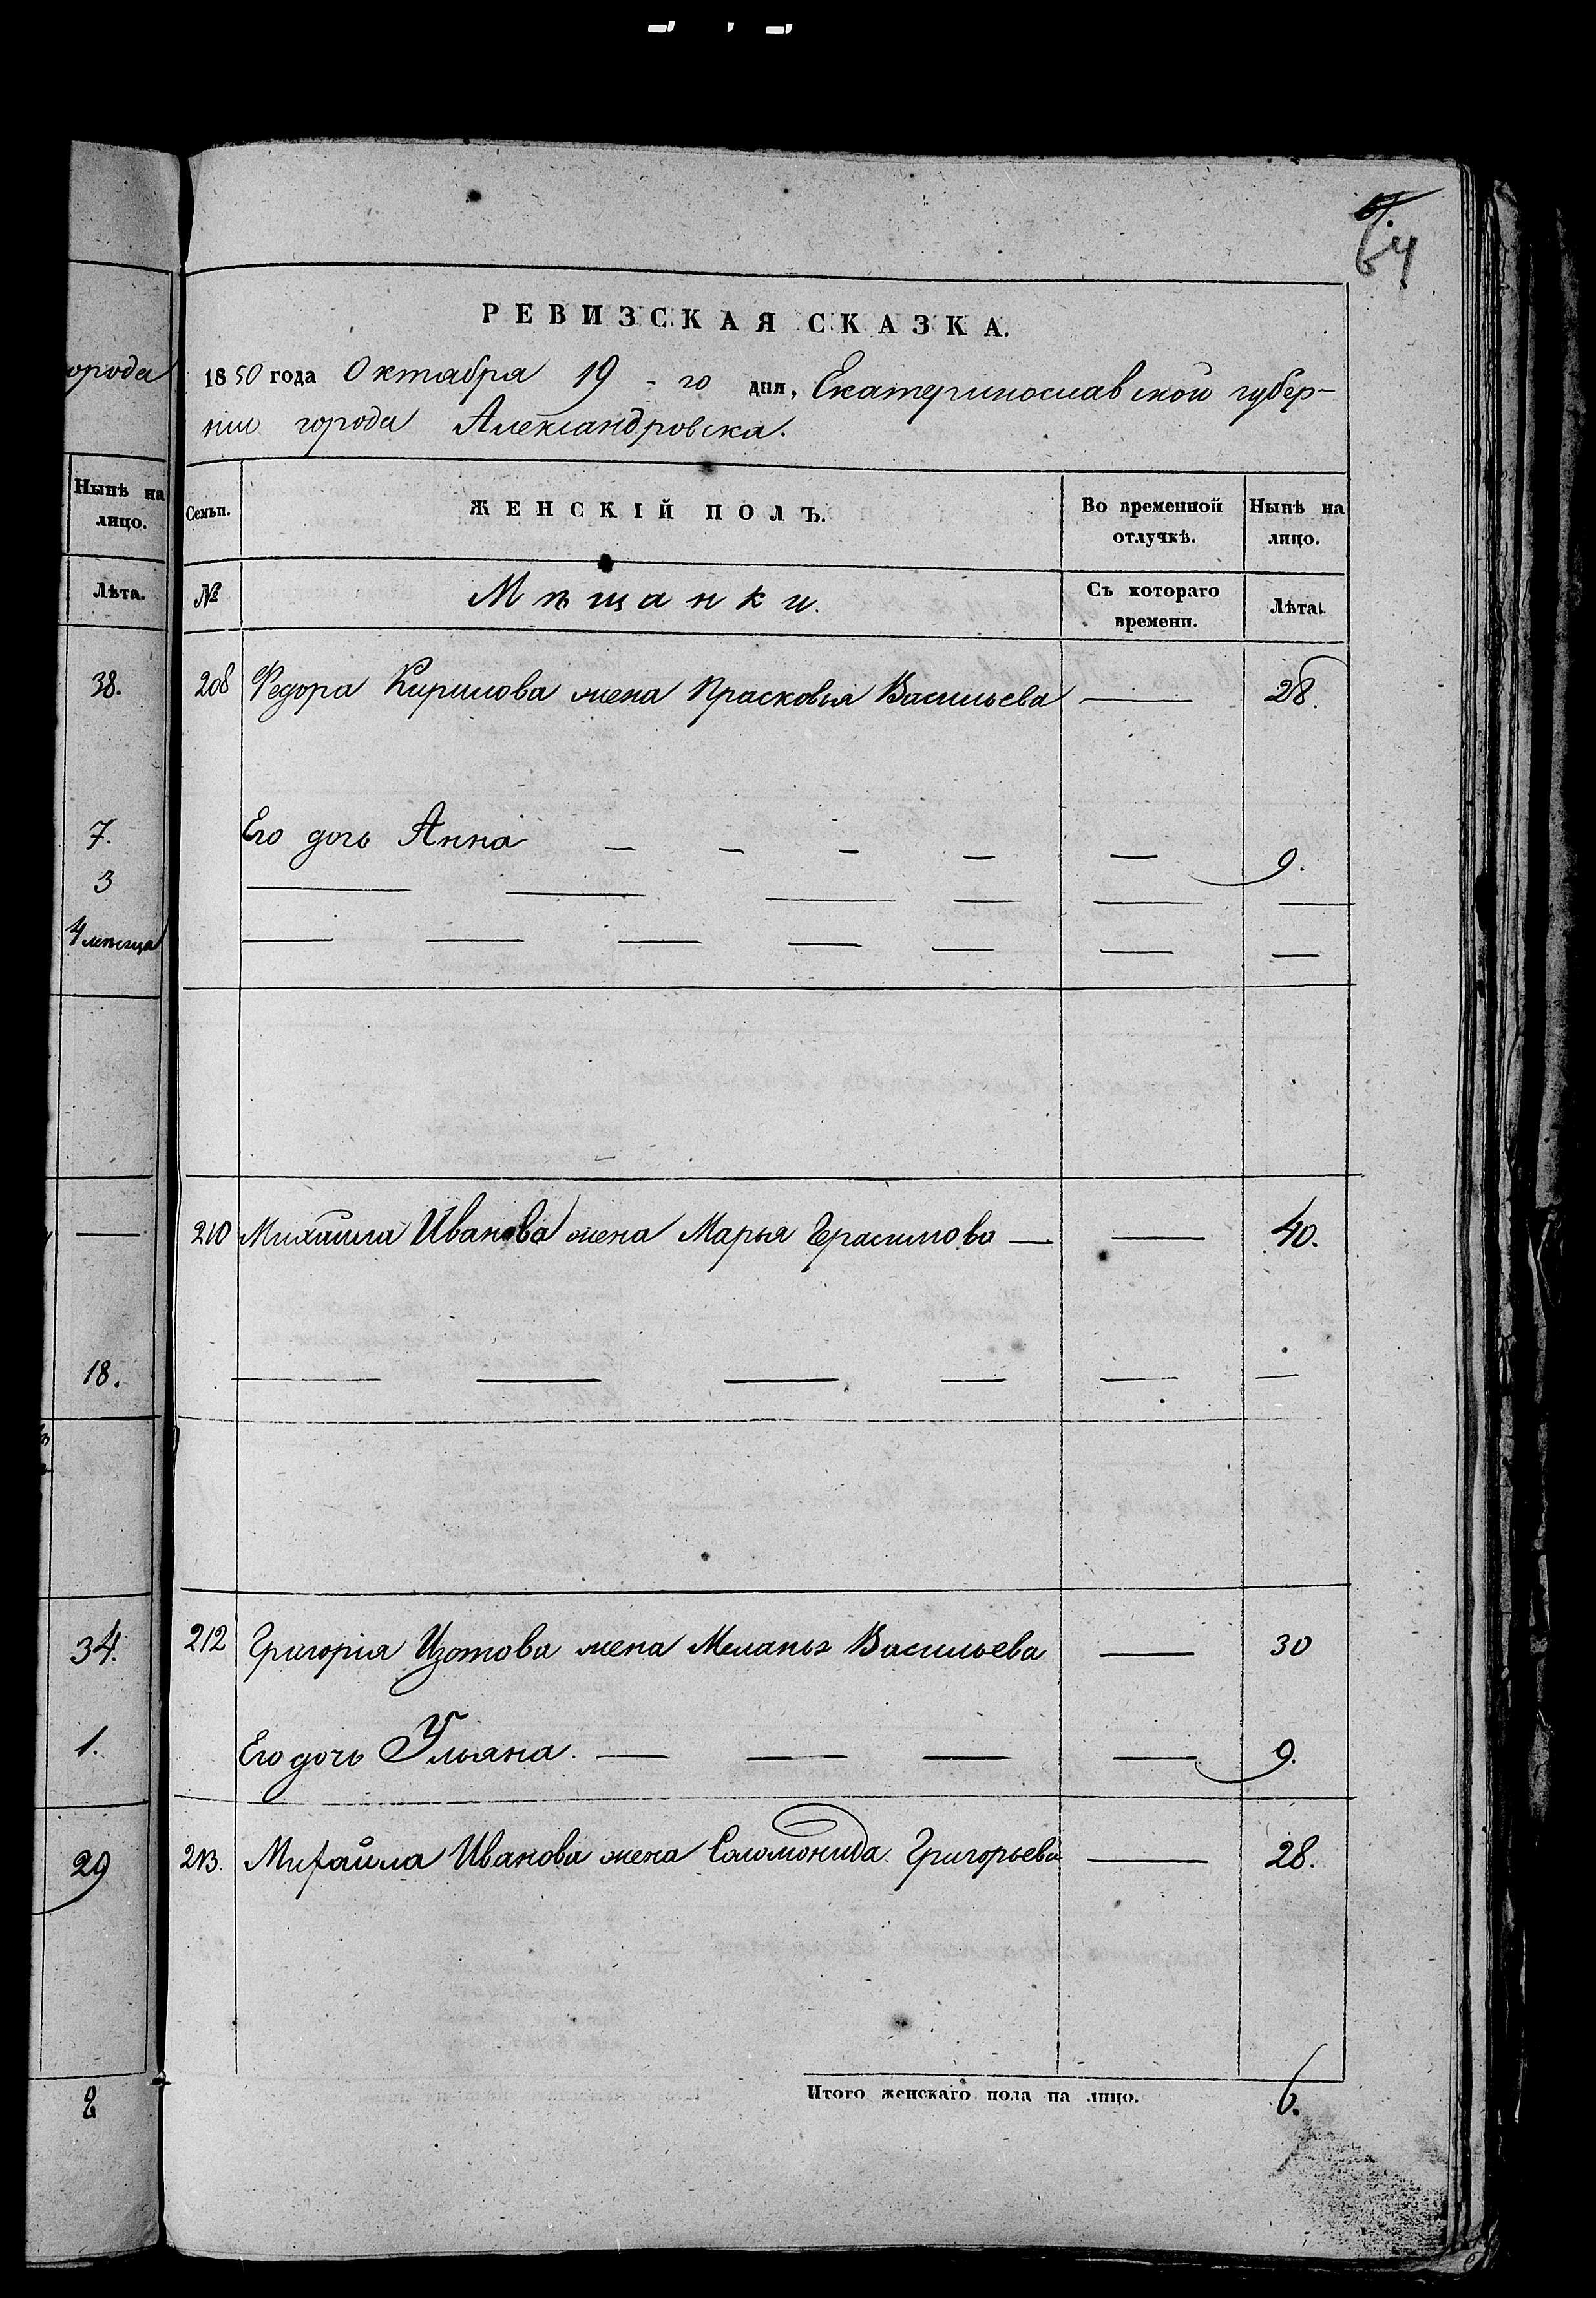 64
орода
Нынѣ на
лицо.
Лѣта.
38.
7.
3
4 месеца
18.
34.
1.
29
2
РЕВИЗСКАЯ СКАЗКА.
1850 года Октабра 19-го дня, Екатеринославской губер-
нии города Александровска.
Семьи. ЖЕНСКІЙ ПОЛЪ. Во временной отлучкѣ. Нынѣ на лицо.
№ Мѣщанки. Съ котораго времени. Лѣта.
208 Федора Кирилова жена Прасковья Васильева — 28.
Его дочь Анна — — — — — 9.
210 Михайла Иванова жена Марья Герасимова — — 40.
212 Григорія Изотова жена Меланья Васильева — 30
Его дочь Ульяна. — — — — 9.
213. Михайла Иванова жена Соломонида Григорьева — 28.
Итого женскаго пола на лицо. 6.